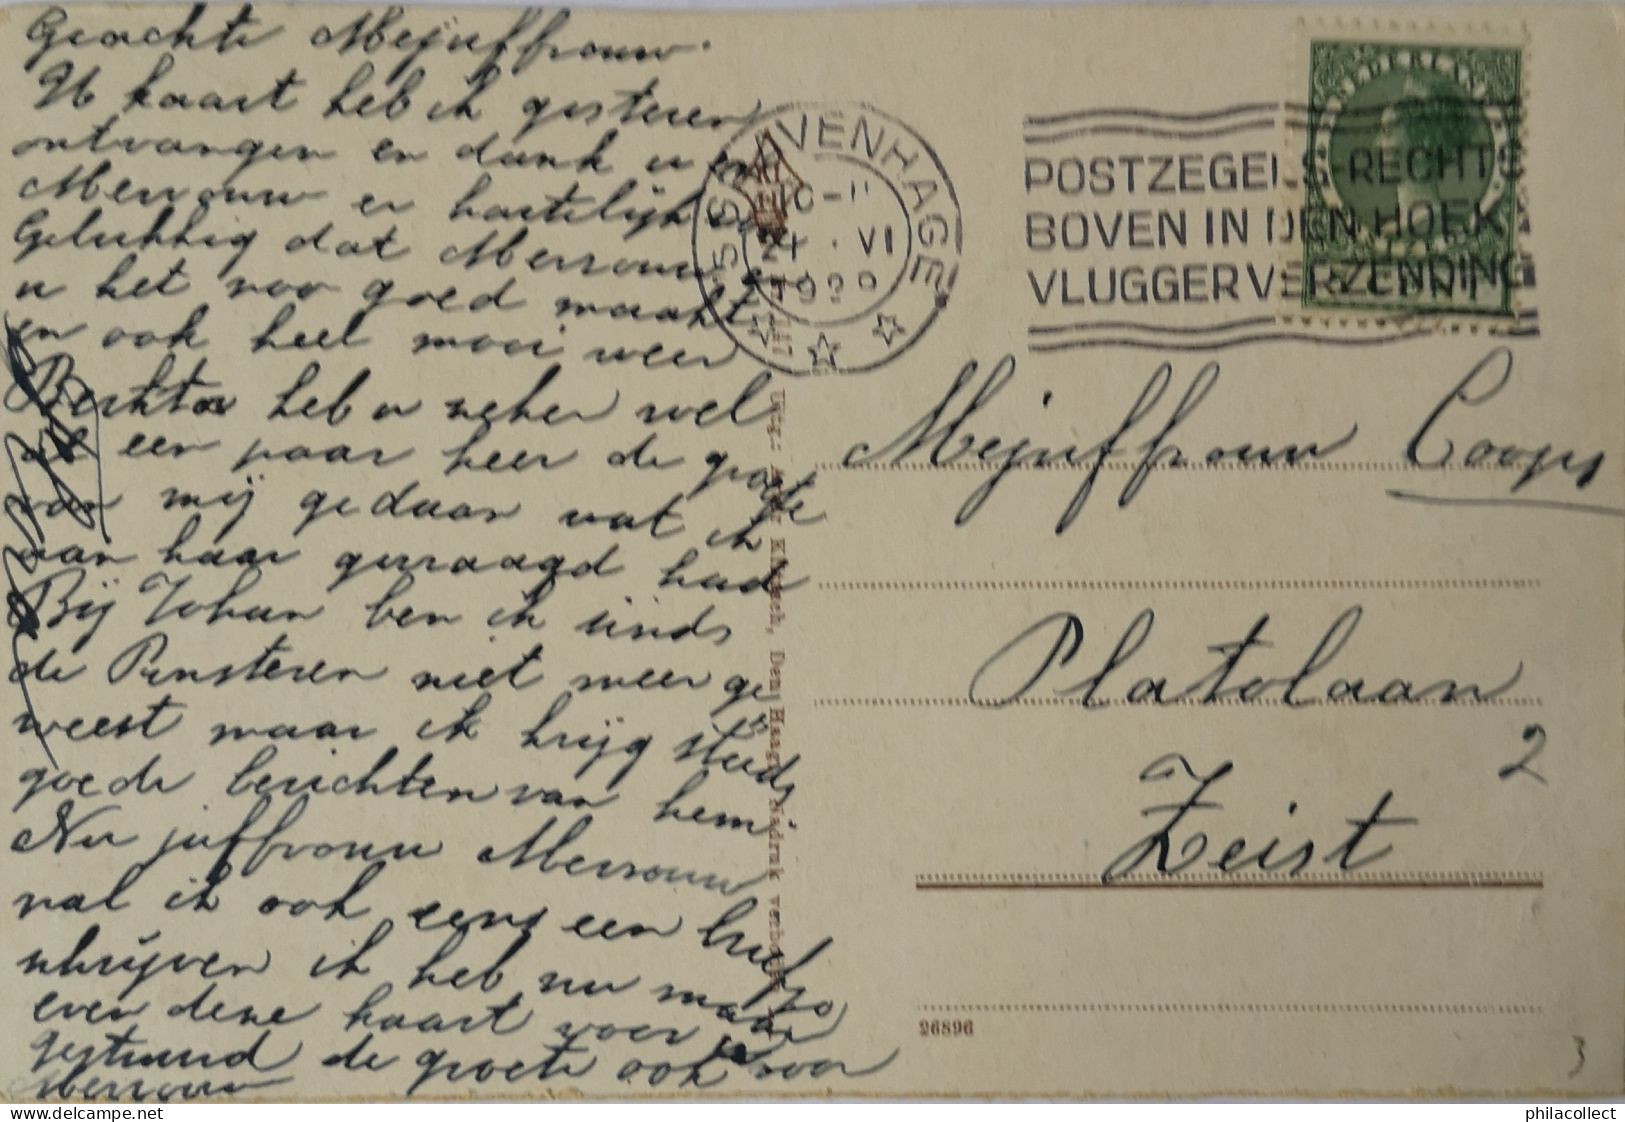 Geachte Mejuffrouw.
U kaart heb ik gisteren
ontvangen en dank u en
Mevrouw er hartelijk voor
Gelukkig dat Mevrouw en
u het zoo goed maakt
en ook heel mooi weer
heb u zeker wel
al een paar keer de groete
van mij gedaan wat ik
aan haar gevraagd had
Bij Johan ben ik sinds
de Pinsteren niet meer ge
weest maar ik krijg steeds
goede berichten van hem
Nu juffrouw Mevrouw
zal ik ook eens een brief
schrijven ik heb nu maar zo
even deze kaart voor u
gestuurd de groete ook voor
Mevrouw
'S GRAVENHAGE
10-11
VI
POSTZEGELS RECHTS
BOVEN IN DEN HOEK
VLUGGER VERZENDING
NEDERLAND
Den Haag. Nadruk verboden
Mejuffrouw Coops
Platolaan
2
Zeist
26896
3
philacollect